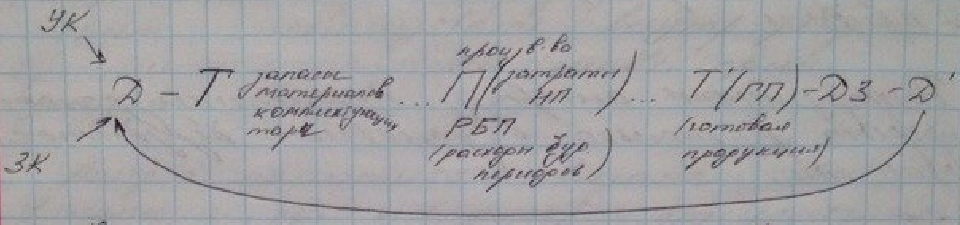 УК
Д - Т запасы материалов комплектующих тара ... П (затраты НП) ... Т' (ГП) - ДЗ - Д'
произв-во
РБП
(расходы буд. периодов)
(готовая продукция)
ЗК